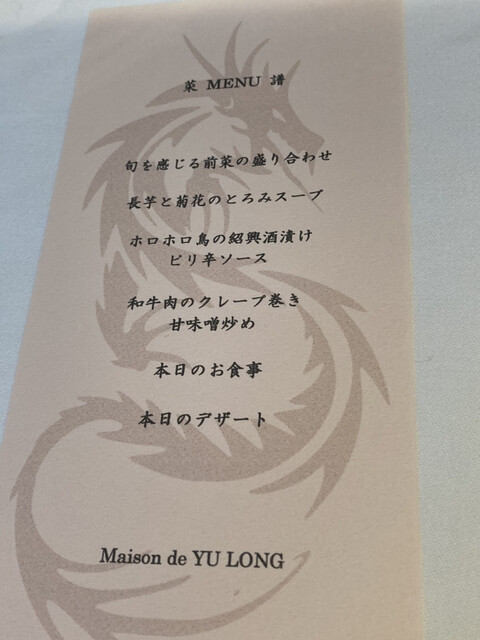 菜 MENU 譜
旬を感じる前菜の盛り合わせ
長芋と菊花のとろみスープ
ホロホロ鳥の紹興酒漬け
ピリ辛ソース
和牛肉のクレープ巻き
甘味噌炒め
本日のお食事
本日のデザート
Maison de YU LONG